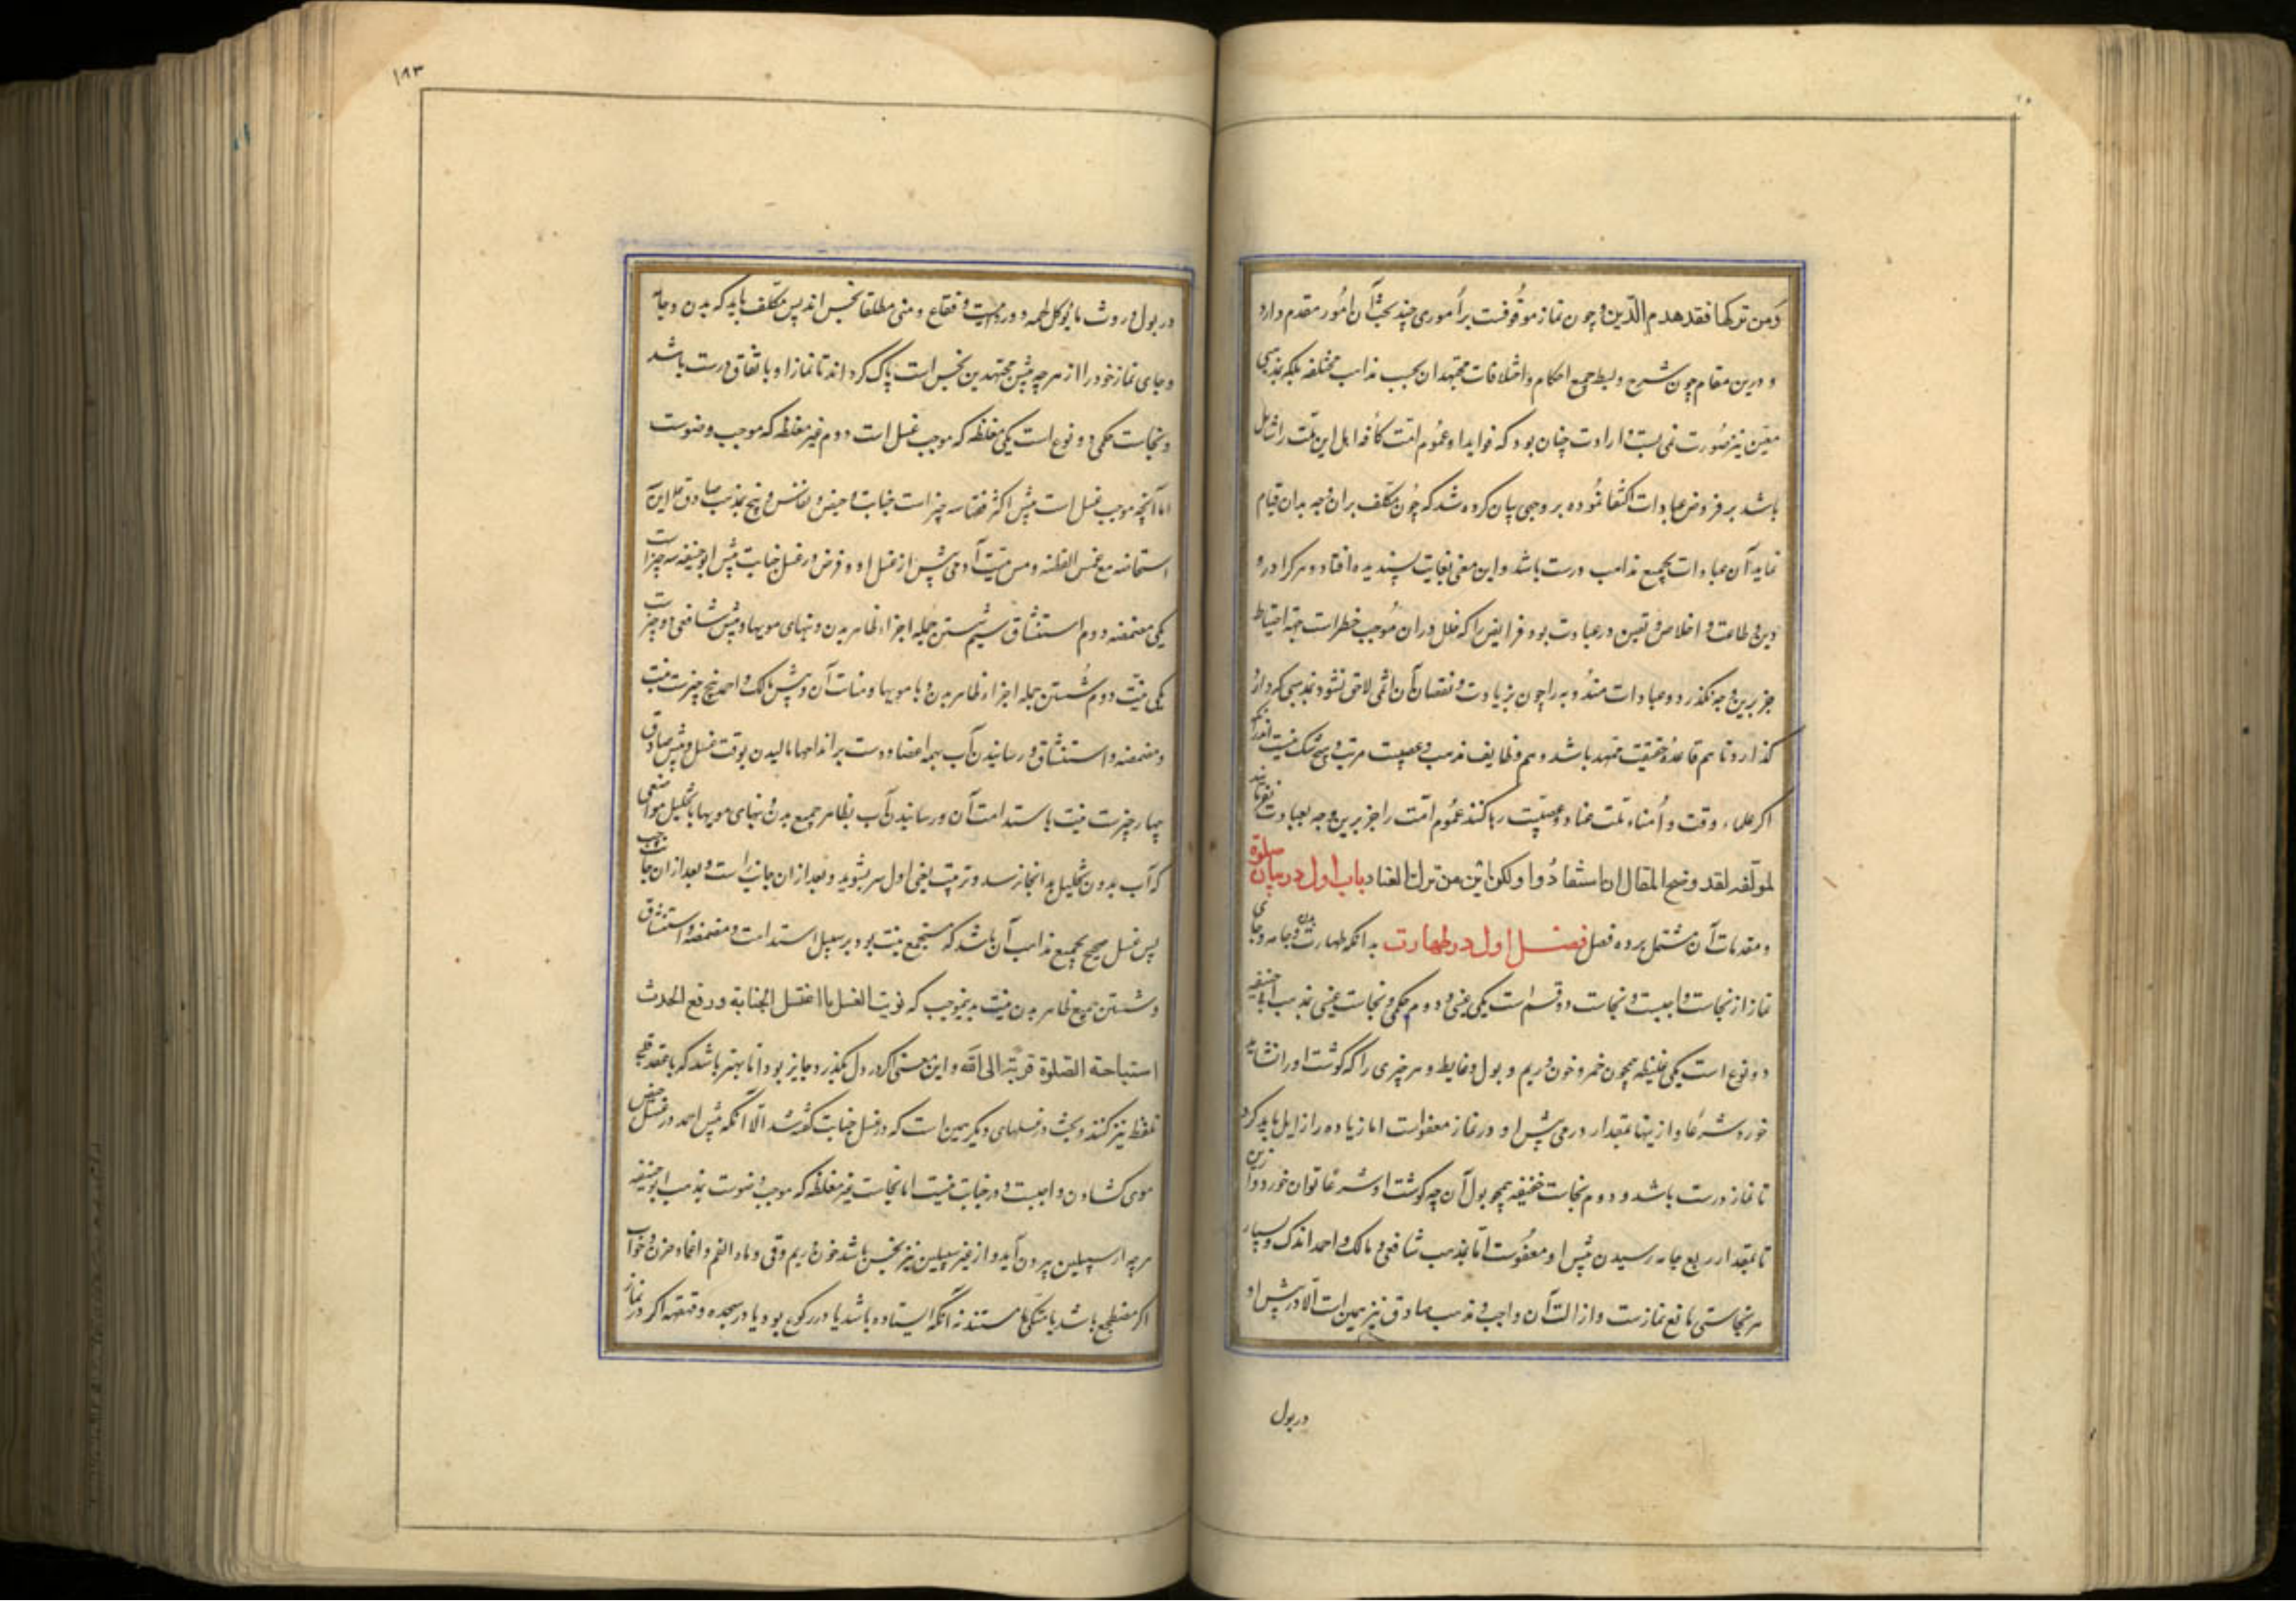 ومن ترکها فقد هدم الدین و چون نماز موقوفست بر اموری چند بحث آن امور مقدم دارد
و درین مقام چون شرح و بسط جمیع احکام و اختلافات مجتهدان بحسب مذاهب مختلفه بلکه بمذهبی
معین نیز صورت نمی بست و ارادت چنان بود که فواید او عموم امت کافه اهل این ملت را شامل
باشد بر فروض عبادات اکتفا نموده بر وجهی بیان کرده شد که چون مکلف بران وجه بدان قیام
نماید آن عبادات بجمیع مذاهب درست باشد و این معنی بغایت پسندیده افتاد و هر کرا درد
دین و طاعت و اخلاص و یقین در عبادت بود فرایض را که خلل دران موجب خطر است جهة احتیاط
جز برین وجه نگذرد و عبادات مندوبه را چون بزیادت و نقصان آن اثمی لاحق نشود بمذهبی که دارد
گذارد تا هم قاعده حقیقت ممهد باشد و هم وظایف مذهب و عصبیت مرتب و هیچ شک نیست اندر آنکه
اگر علماء وقت و امناء ملت عناد و عصبیت رها کنند عموم امت را جز برین وجه بعبادت نفرمایند
لمولفه لقد وضح المقال ان استفادوا ولکن این من ترك العناد باب اول در بیان صلوة
و مقدمات آن مشتمل بر ده فصل فصل اول در طهارت بدانکه طهارت بدن و جامه و جای
نماز از نجاست واجبست و نجاست دو قسم است یکی عینی و دوم حکمی و نجاست عینی بمذهب ابو حنیفه
دو نوع است یکی غلیظه همچون خمر و خون و ریم و بول و غایط و هر چیزی را که گوشت او را نشاید
خورد شرعا و ازینها بمقدار درمی پیش او در نماز معفو است اما زیاده را زایل باید کرد
تا نماز درست باشد و دوم نجاست خفیفه همچو بول آن چه گوشت او شرعا توان خورد و ازین
تا بمقدار ربع جامه رسیدن پیش او معفوست اما بمذهب شافعی و مالک و احمد اندک و بسیار
هر نجاستی مانع نمازست و ازالت آن واجب و مذهب صادق نیز همین است الا در پیش او
در بول
۱۸۳
در بول و روث ماکول لحمه و ورمیت و فقاع و منی مطلقا نجس اند پس مکلف باید که بدن و جامه
و جای نماز خود را از هر چه پیش مجتهدین نجس است پاک گرداند تا نماز او باتفاق درست باشد
و نجاست حکمی دو نوع است یکی مغلظه که موجب غسل است دوم غیر مغلظه که موجب وضوست
اما آنچه موجب غسل است پیش اکثر فقها سه چیز است جنابت و حیض و نفاس و پنج بمذهب صادق این سه
استحاضه مع غمس القطنه و مس میت آدمی پیش از غسل او و فرض در غسل جنابت پیش ابو حنیفه سه چیز است
یکی مضمضه دوم استنشاق سیم شستن جمله اجزاء ظاهر بدن و بنهای مویها و پیش شافعی دو چیز است
یکی نیت دوم شستن جمله اجزاء ظاهر بدن با مویها و منابت آن و پیش مالک و احمد پنج چیزست نیت
و مضمضه و استنشاق و رسانیدن آب بهمه اعضا و دست بر اندامها مالیدن بوقت غسل و پیش صادق
چهار چیزست نیت با استدامت آن و رسانیدن آب بظاهر جمیع بدن و بنهای مویها با تخلیل مواضعی
که آب بدون تخلیل بدانجا نرسد و ترتیب یعنی اول سر بشوید و بعد ازان جانب راست و بعد ازان جانب چپ
پس غسل صحیح بجمیع مذاهب آن باشد که مستجمع نیت بود بر سبیل استدامت و مضمضه و استنشاق
و شستن جمیع ظاهر بدن نیت بدینموجب که نویت الغسل یا اغتسل الجنابة و رفع الحدث
استباحة الصلوة قربة الی الله و این معنی اگر در دل بگذرد جایز بود اما بهتر باشد که با عقد قلب
تلفظ نیز کنند و بحث در غسلهای دیگر همین است که در غسل جنابت گفته شد الا آنکه پیش احمد در غسل حیض
موی گشادن واجبست و در جنابت نیست اما نجاست غیر مغلظه که موجب وضوست بمذهب ابو حنیفه
هر چه از سبیلین بیرون آید و از غیر سبیلین نیز نجس باشد خون و ریم و قی و ملء الفم و اغما و جنون و خواب
اگر مضطجع باشد یا متکی یا مستند نه آنکه ایستاده باشد یا در رکوع بود یا در سجده و قهقهه اگر در نماز